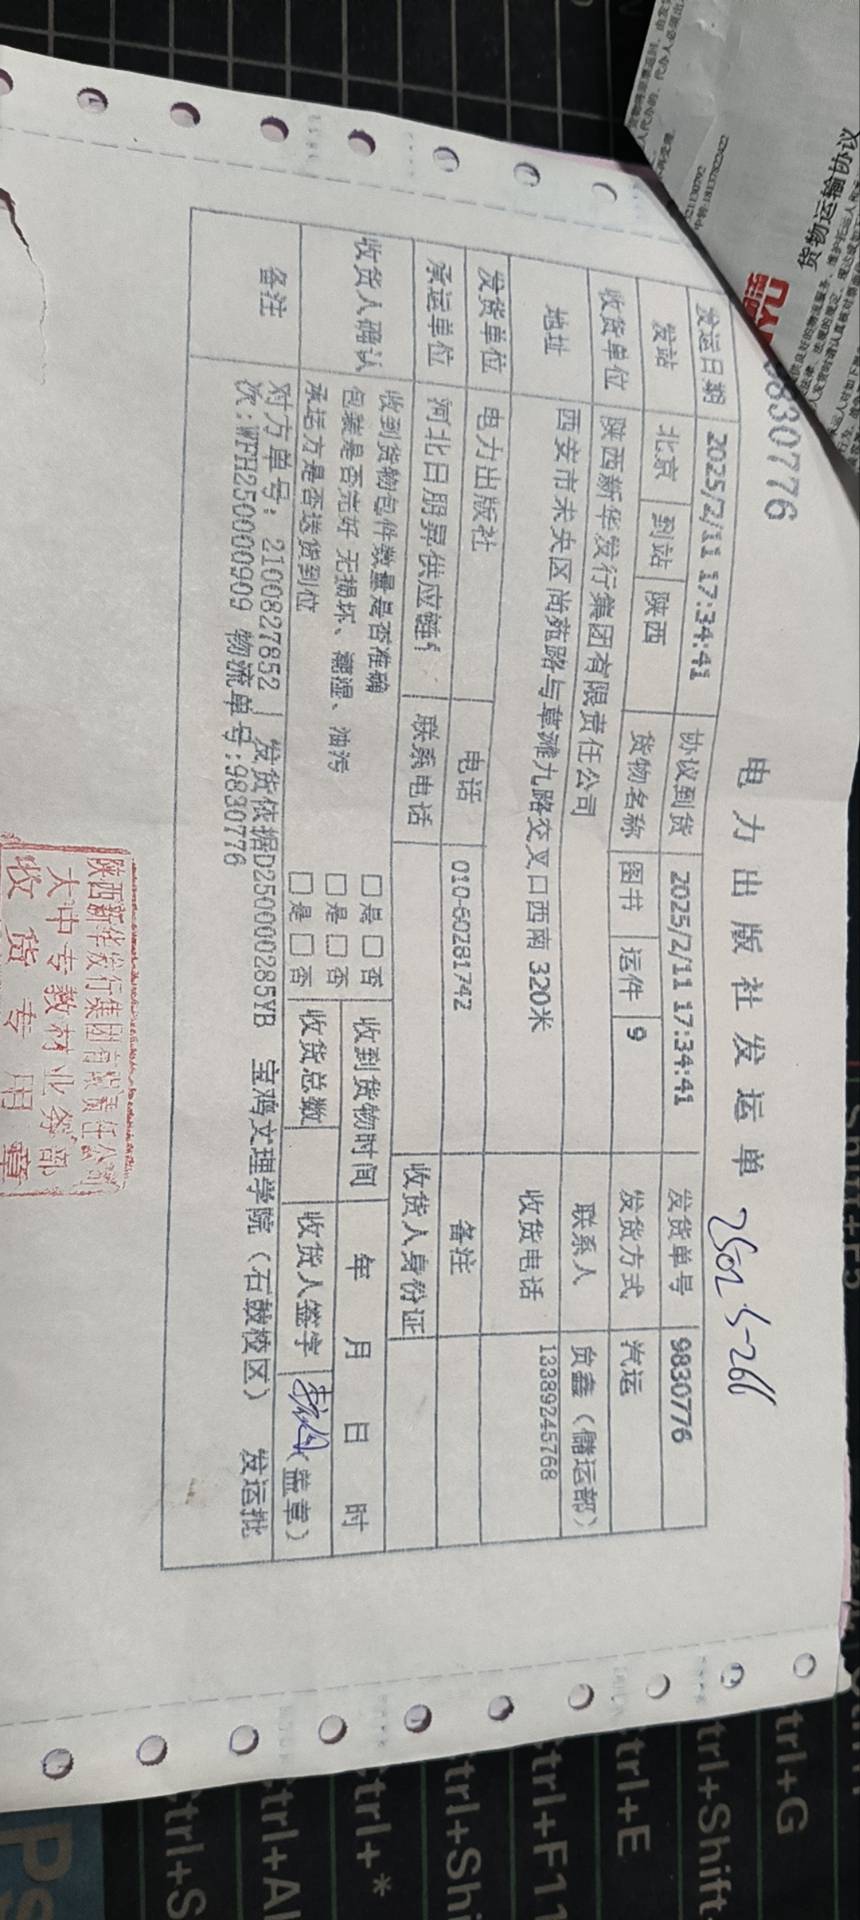 9830776
电力出版社发运单
2502·5-266
发运日期 2025/2/11 17:34:41 协议到货 2025/2/11 17:34:41 发货单号 9830776
发站 北京 到站 陕西 货物名称 图书 运件 9 发货方式 汽运
收货单位 陕西新华发行集团有限责任公司 联系人 贠鑫（储运部）
地址 西安市未央区尚苑路与草滩九路交叉口西南 320米 收货电话 13389245768
发货单位 电力出版社 电话 010-60281742 备注
承运单位 河北日朋昇供应链 联系电话 收货人身份证
收货人确认 收到货物包件数量是否准确 □是□否 收到货物时间 年 月 日 时
包装是否完好 无损坏、潮湿、油污 □是□否
承运方是否送货到位 □是□否 收货总数 收货人签字 （盖章）
备注 对方单号：2100827852 发货依据D250000285YB 宝鸡文理学院（石鼓校区） 发运批
次:WFH2500000909 物流单号:9830776
陕西新华发行集团有限责任公司
大中专教材业务部
收货专用章
货物运输协议
trl+G
trl+Shift
trl+E
trl+F11
trl+Shi
trl+*
trl+Al
trl+S
PS